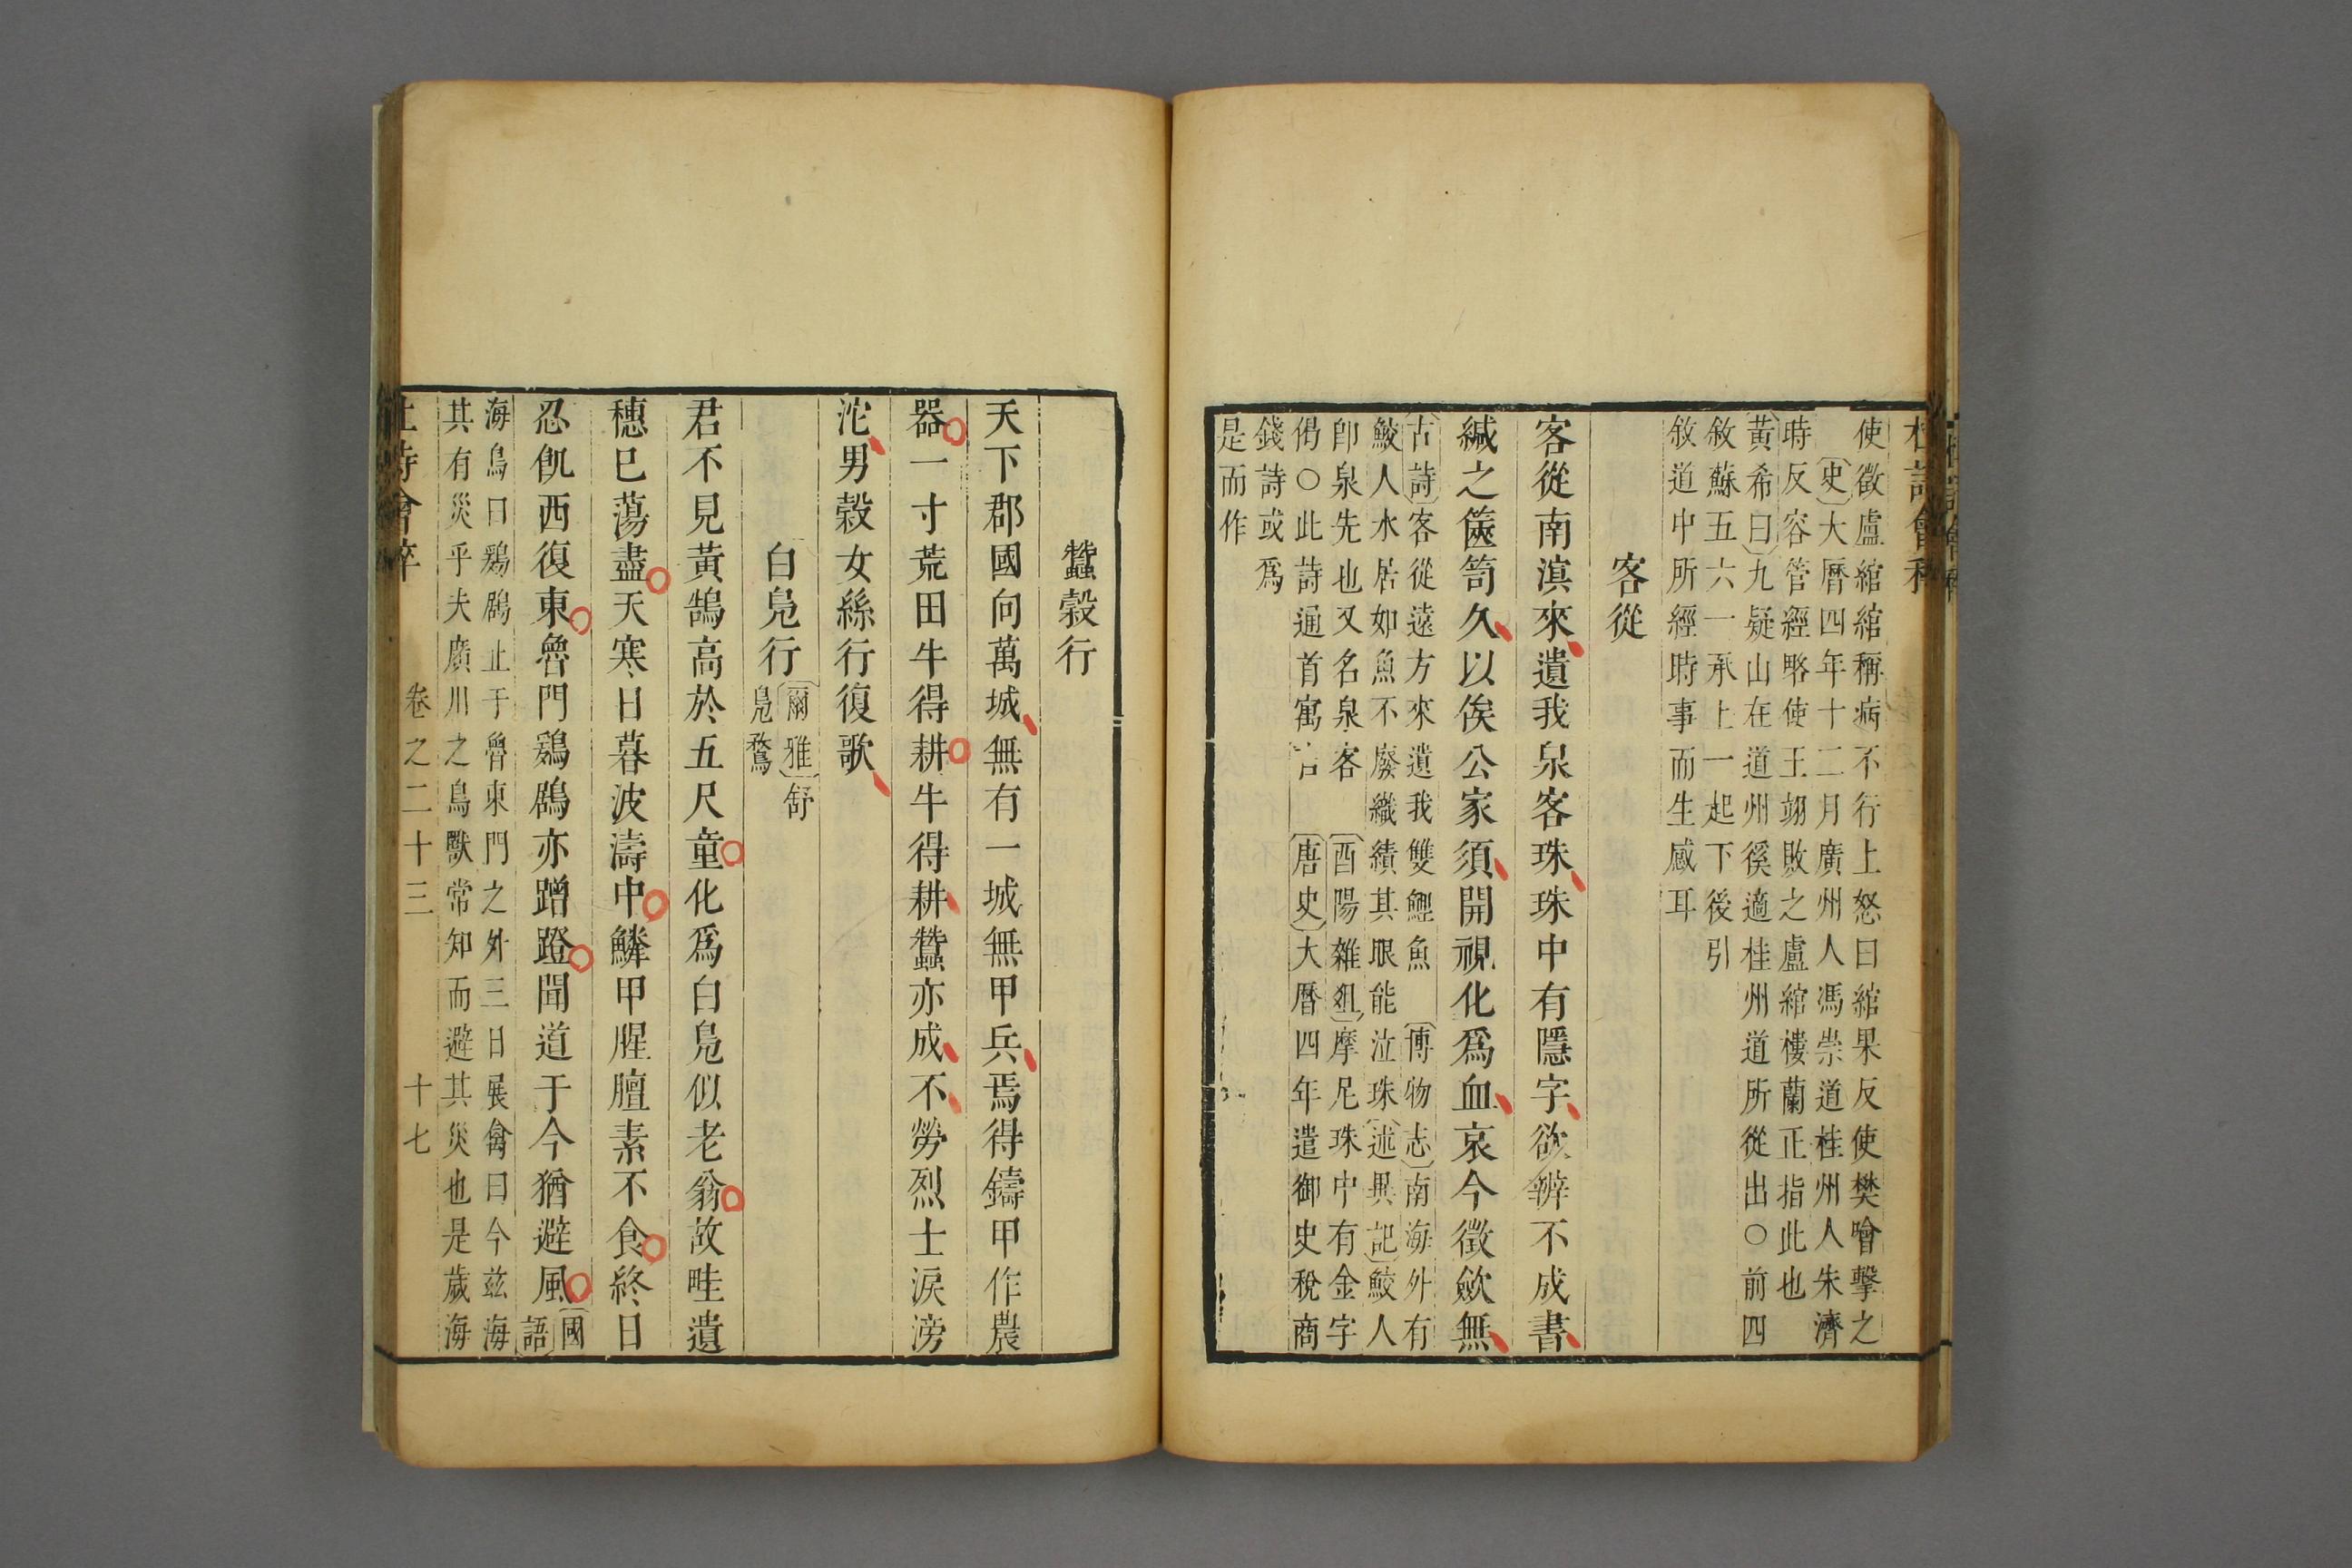 使徵盧綰綰稱病不行上怒曰綰果反使樊噲擊之
史大曆四年十二月廣州人馮崇道桂州人朱濟
時反容管經略使王翃敗之盧綰樓蘭正指此也
黃希曰九疑山在道州徯適桂州道所從出○前四
敘蘇五六一承上一起下後引
敘道中所經時事而生感耳
客從
客從南溟來遺我泉客珠珠中有隱字欲辨不成書
緘之篋笥久以俟公家須開視化爲血哀今徵斂無
古詩客從遠方來遺我雙鯉魚 博物志南海外有
鮫人水居如魚不廢織績其眼能泣珠述異記鮫人
卽泉先也又名泉客 酉陽雜俎摩尼珠中有金字
偈○此詩通首寓言 唐史大曆四年遣御史稅商
錢詩或爲
是而作
蠶穀行
天下郡國向萬城無有一城無甲兵焉得鑄甲作農
器一寸荒田牛得耕牛得耕蠶亦成不勞烈士淚滂
沱男穀女絲行復歌
白鳧行 爾雅舒
鳧鶩
君不見黃鵠高於五尺童化爲白鳧似老翁故畦遺
穗已蕩盡天寒日暮波濤中鱗甲腥膻素不食終日
忍飢西復東魯門鶢鶋亦蹭蹬聞道于今猶避風 國
語
海鳥曰鶢鶋止于魯東門之外三日展禽曰今茲海
其有災乎夫廣川之鳥獸常知而避其災也是歲海
杜詩會稡 卷之二十三 十七